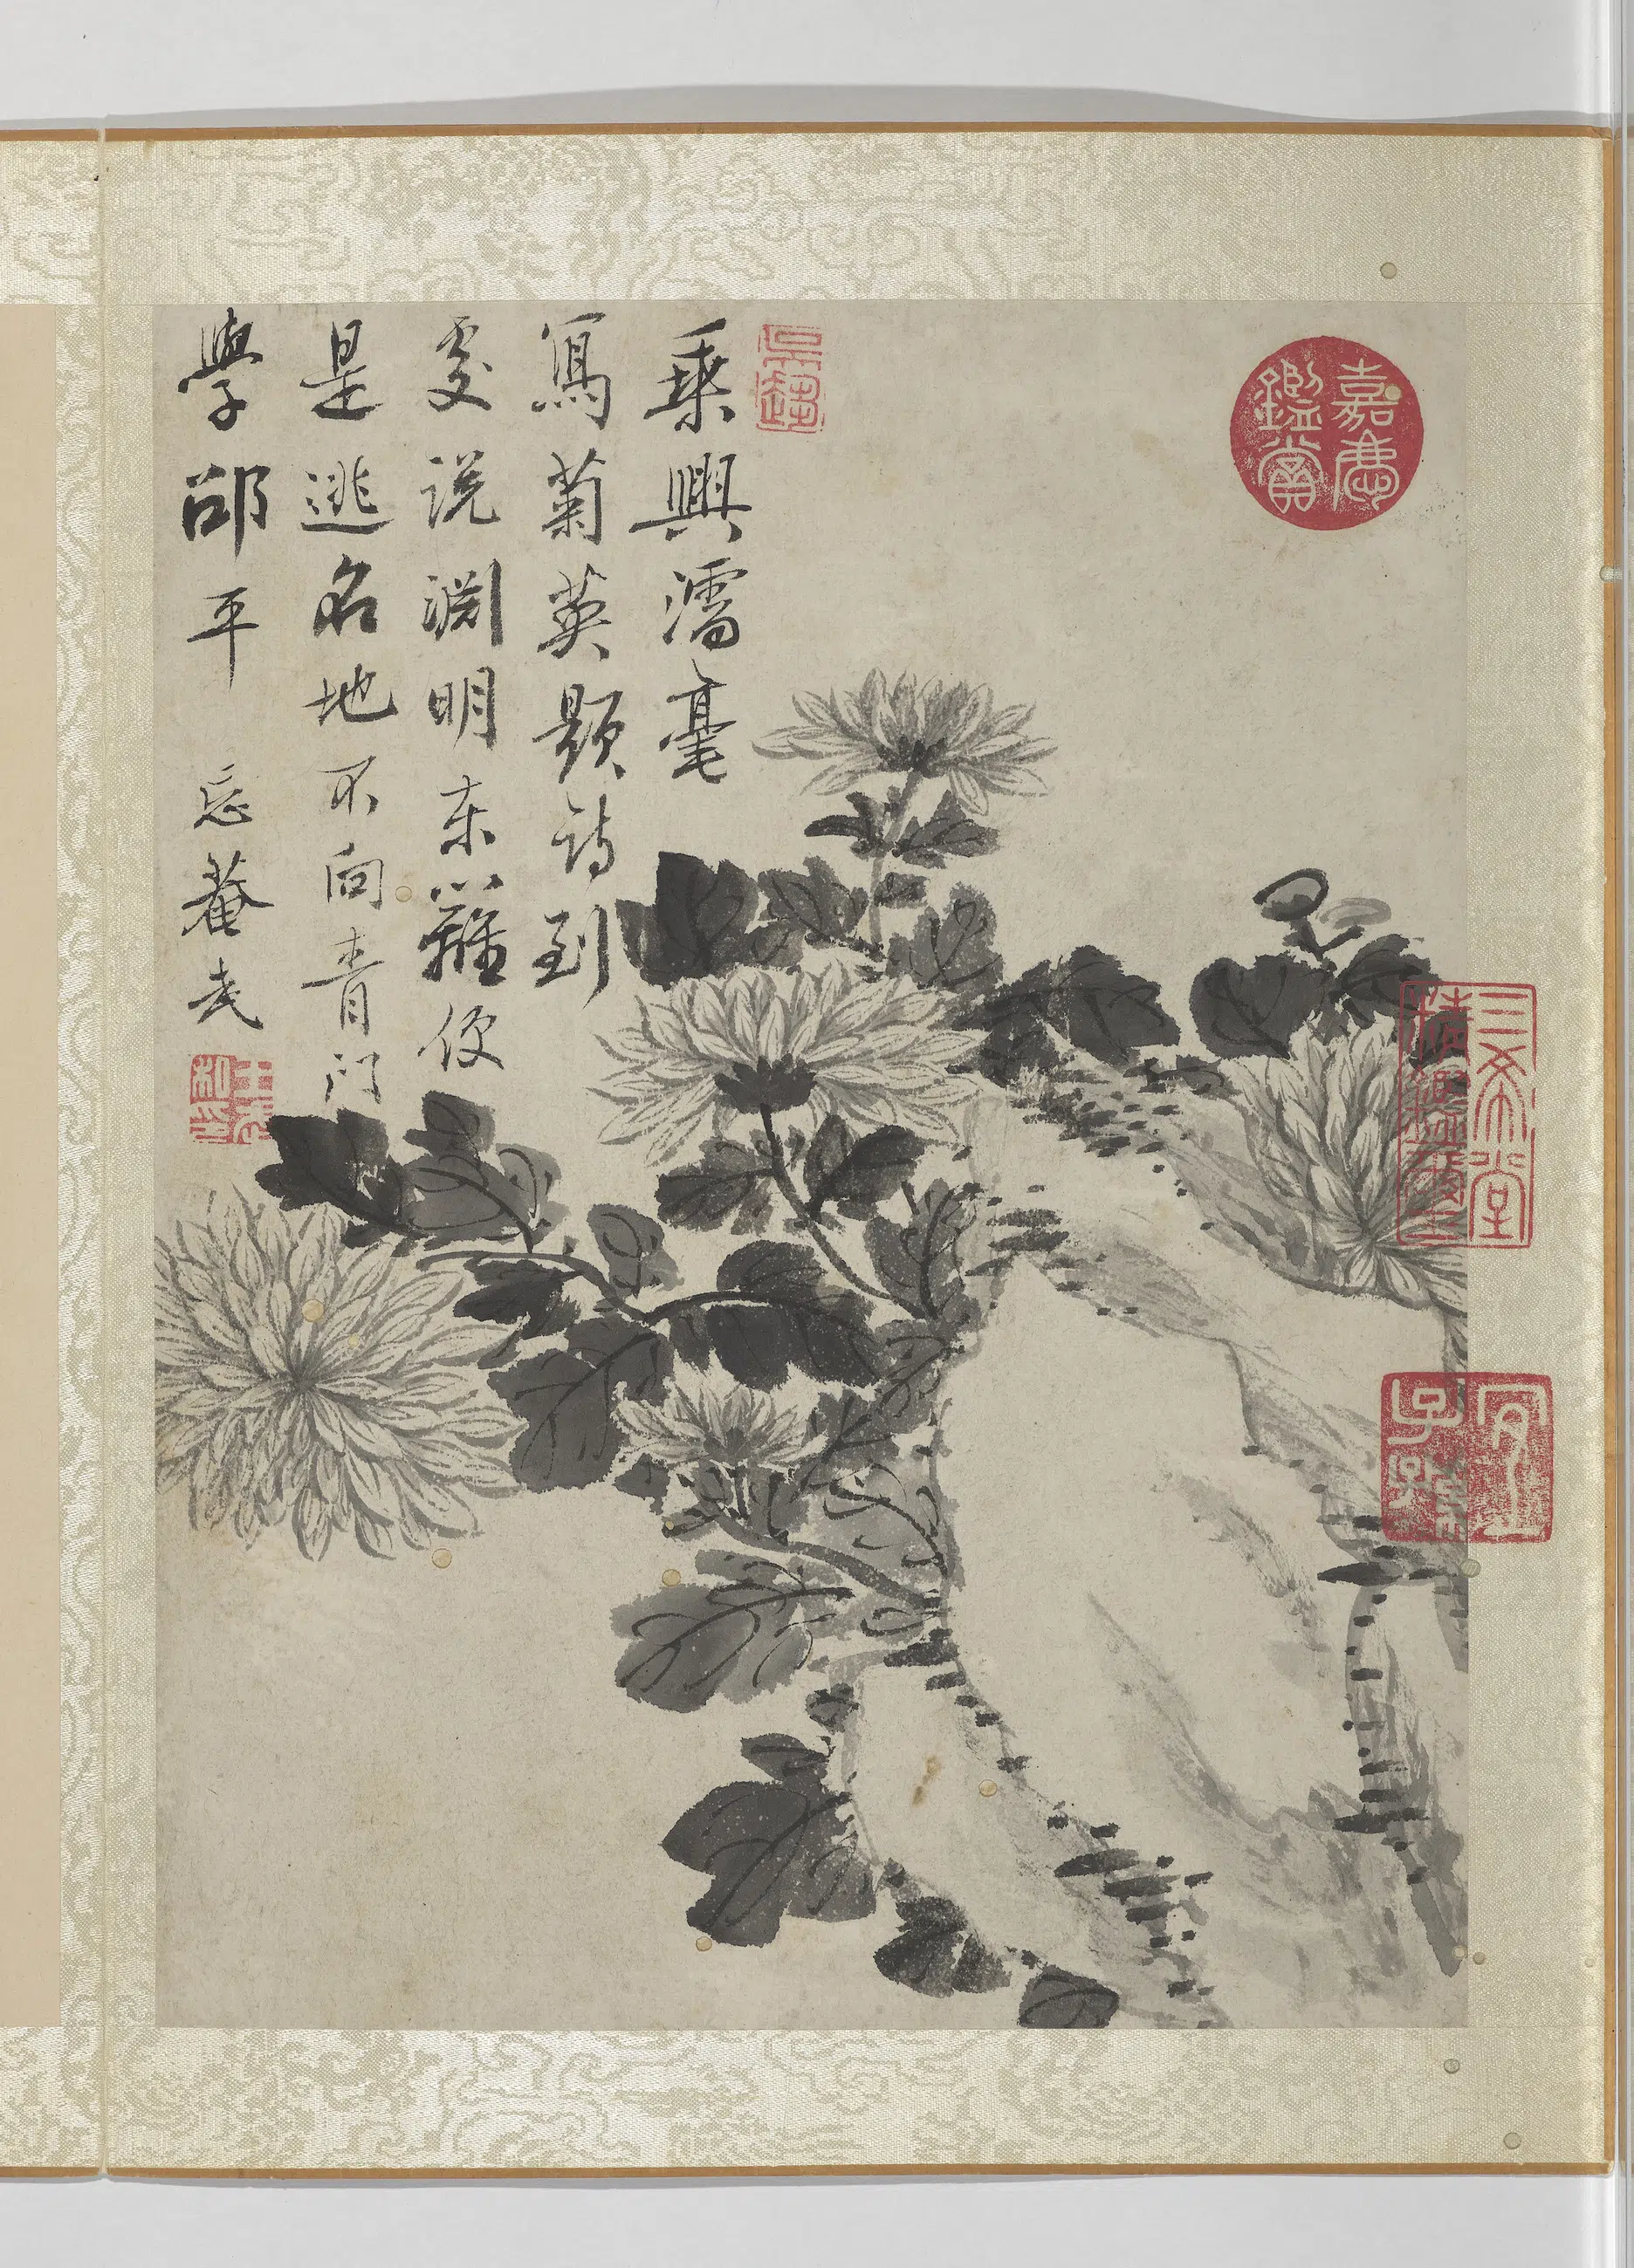 乘興濡毫
寫菊英題詩到
處說淵明東籬便
是逃名地不向青門
學邵平 忘菴武
嘉慶鑑賞
三希堂
精鑑璽
宜子孫